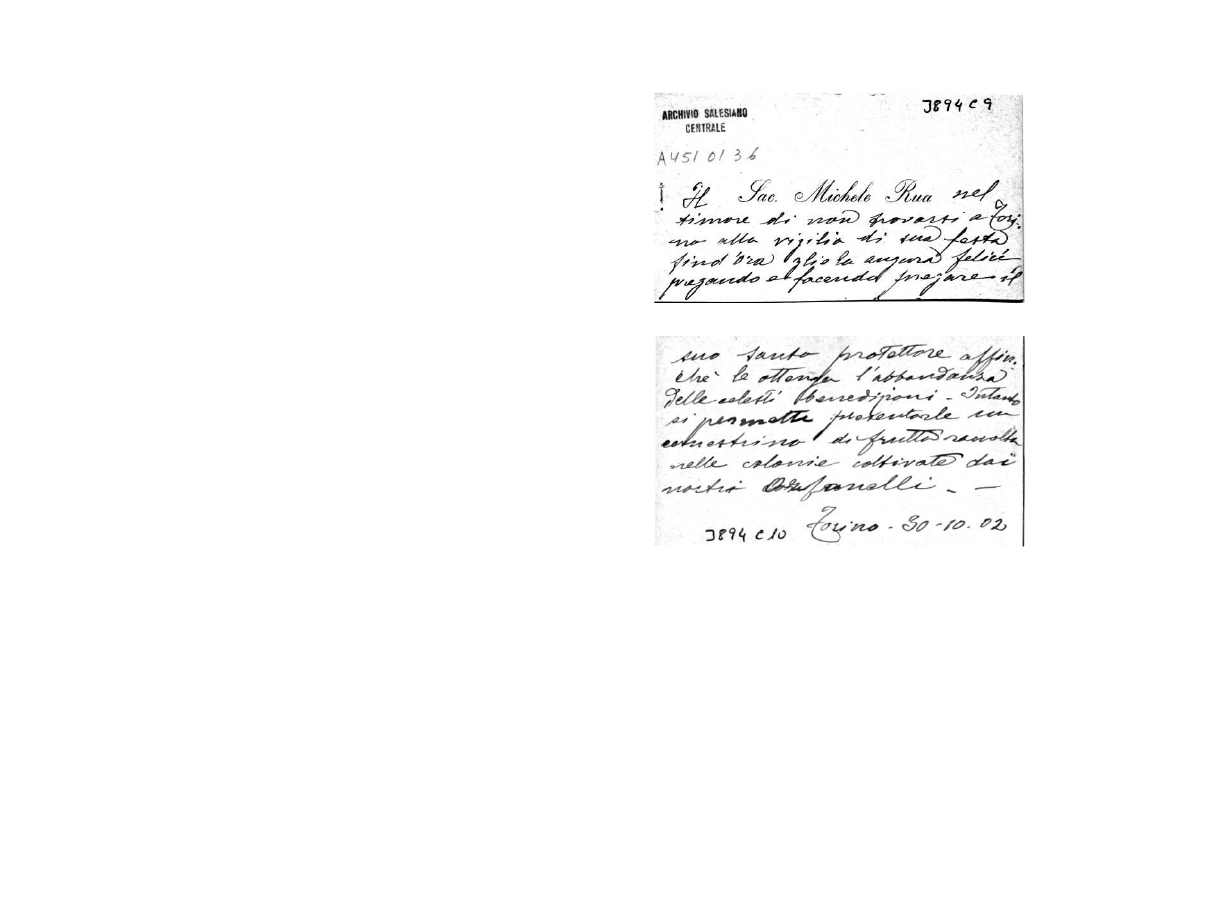 ARCHIVIO SALESIANO
CENTRALE
J894 C 9
A451 01 36
Il Sac. Michele Rua nel
timore di non trovarsi a Tori-
no alla vigilia di sua festa
find'ora gliela augura felice
pregando e facendo pregare il
suo santo protettore affin-
chè le ottenga l'abbondanza
delle celesti benedizioni - Intanto
si permette presentarle un
canestrino di frutta raccolta
nelle colonie coltivate dai
nostri Orfanelli - -
J894 C 10 Torino - 30-10-02